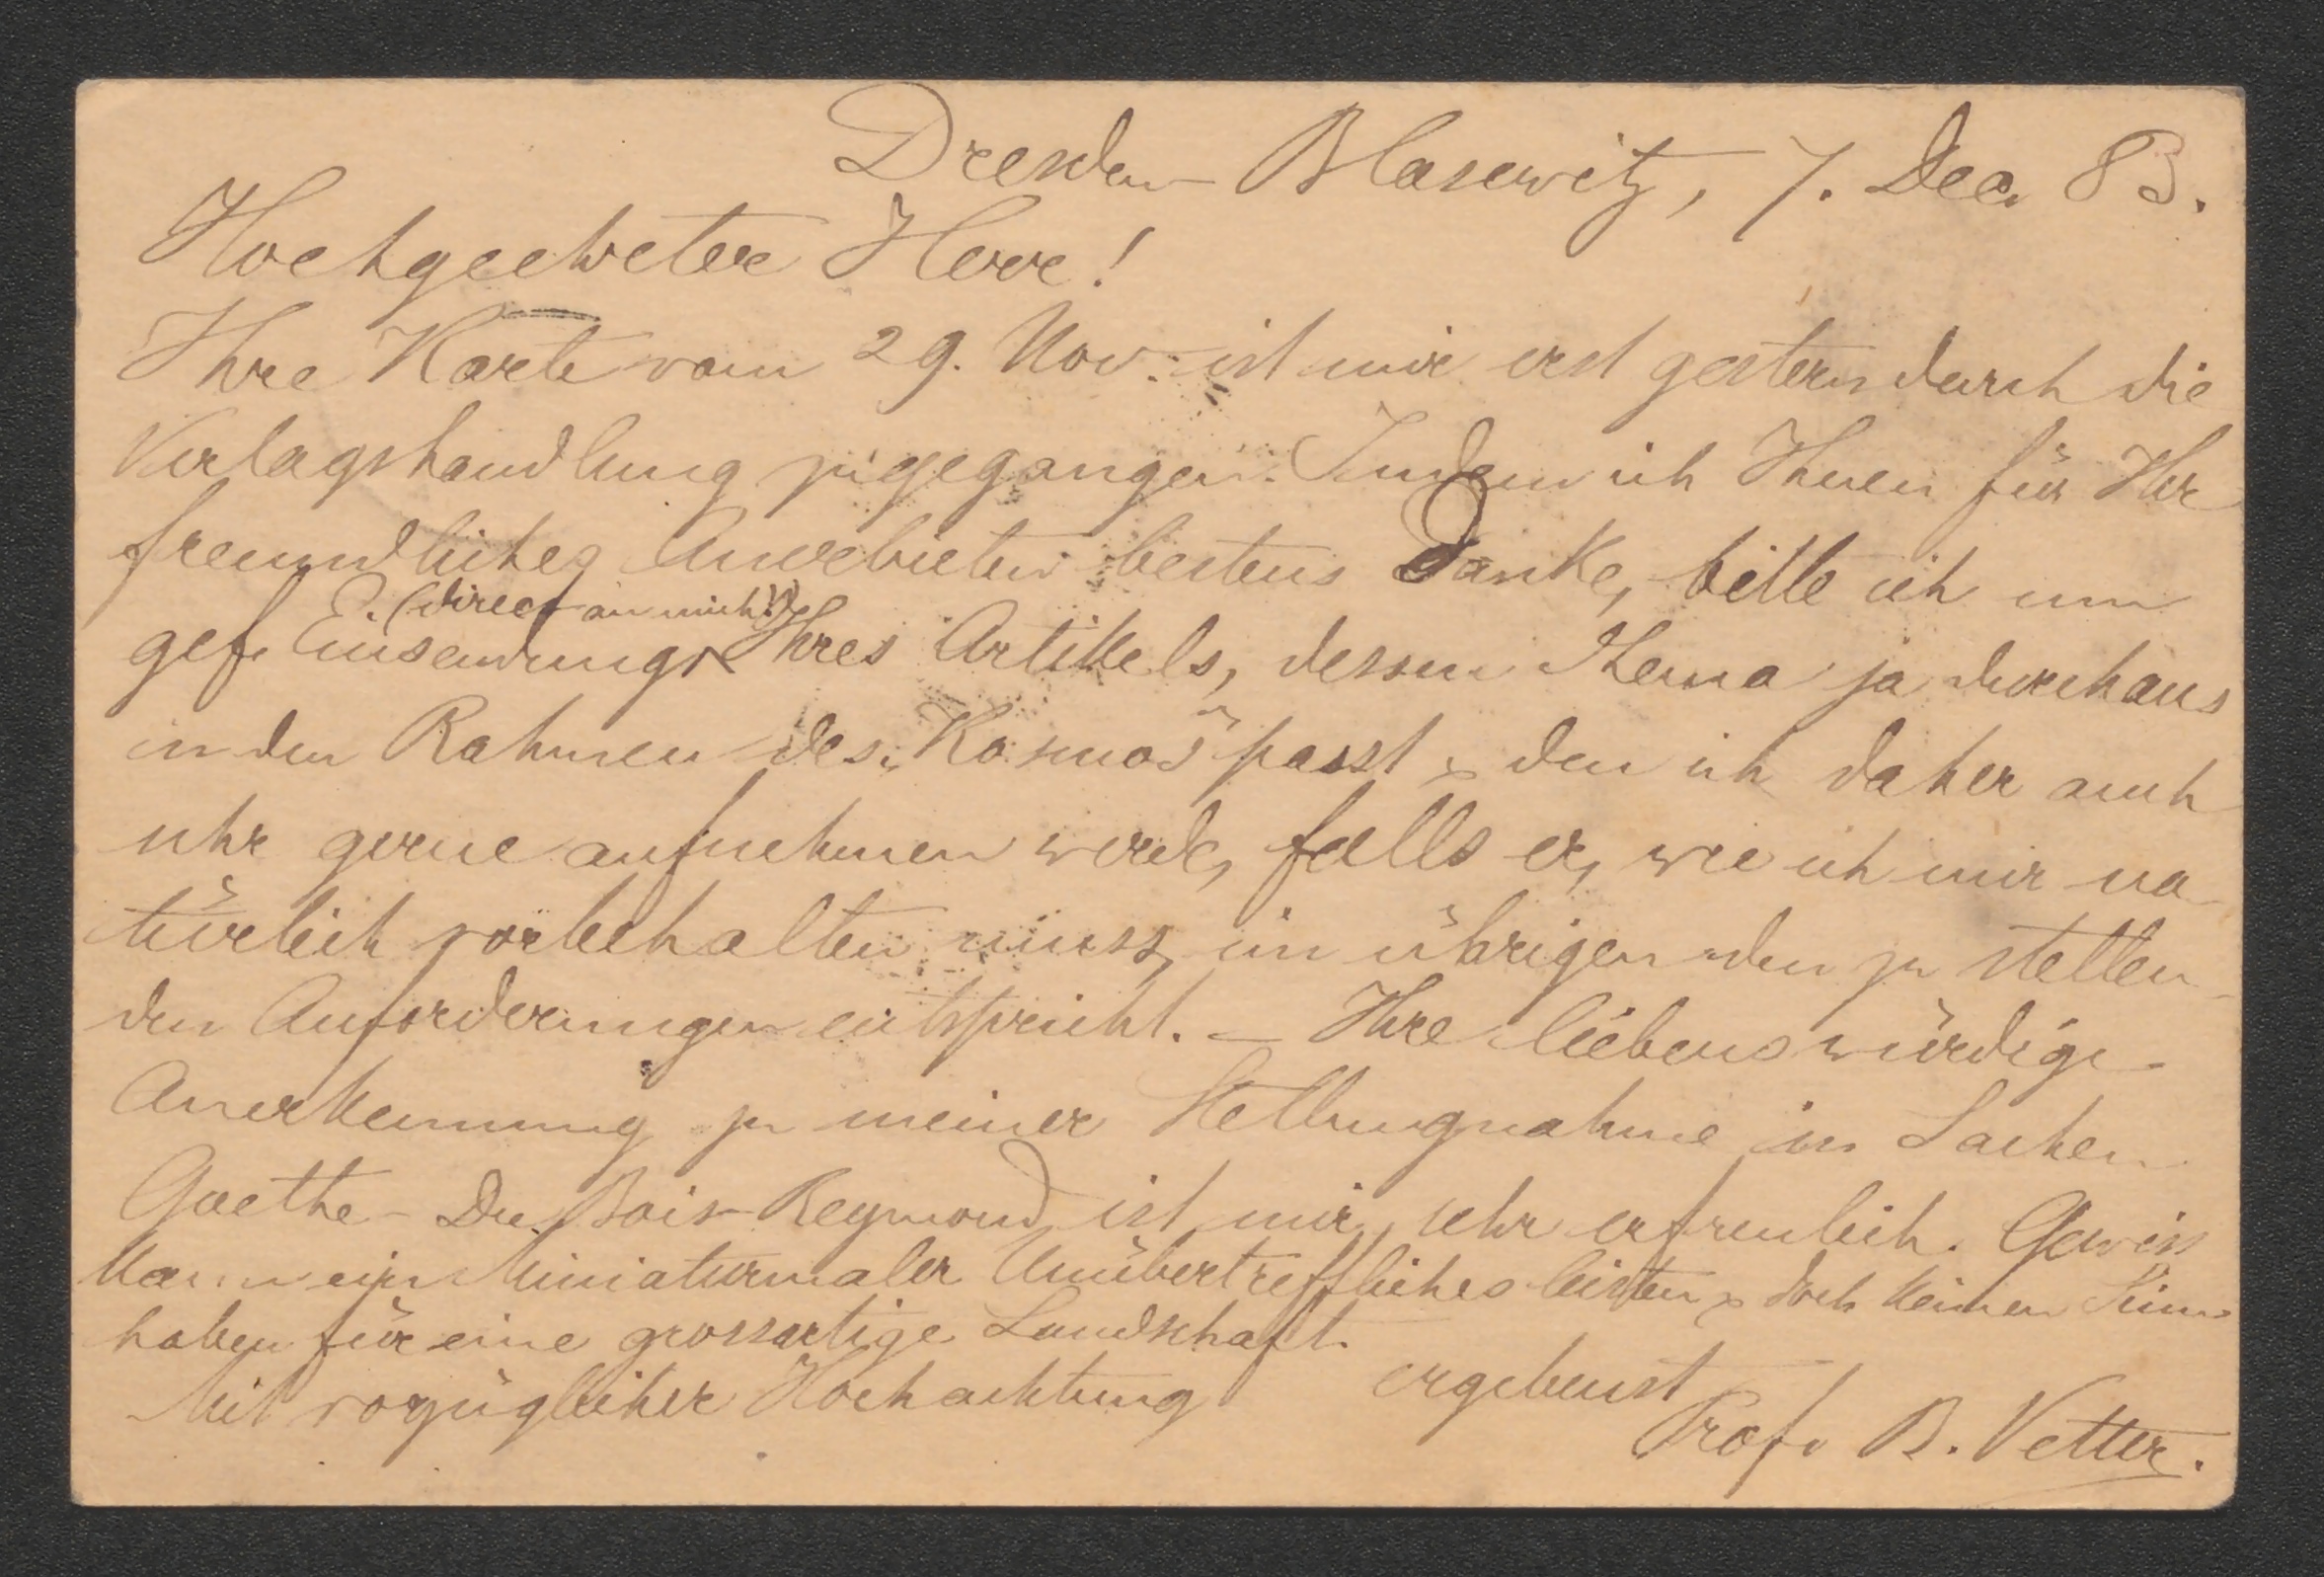 Dresden-Blasewitz, 7. Dec 83.
Hochgeehrter Herr!
Ihre Karte vom 29. Nov. ist mir erst gestern durch die
Verlagshandlung zugegangen. Indem ich Ihnen für Ihr
freundliches Anerbieten bestens danke, bitte ich um
(direct an mich!)
gef. Einsendung Ihres Artikels, dessen Thema ja durchaus
in den Rahmen des „Kosmos“ passt & den ich daher auch
sehr gerne aufnehmen werde, falls er, wie ich mir na-
türlich vorbehalten muss, im übrigen den zu stellen-
den Anforderungen entspricht. – Ihre liebenswürdige
Anerkennung zu meiner Stellungnahme in Sachen
Goethe - Du Bois-Reymond ist mir sehr erfreulich. Gewiss
kann ein Miniaturmaler Unübertreffliches leisten & doch keinen Sinn
haben für eine grossartige Landschaft.
Mit vorzüglicher Hochachtung ergebenst
Prof. B. Vetter.